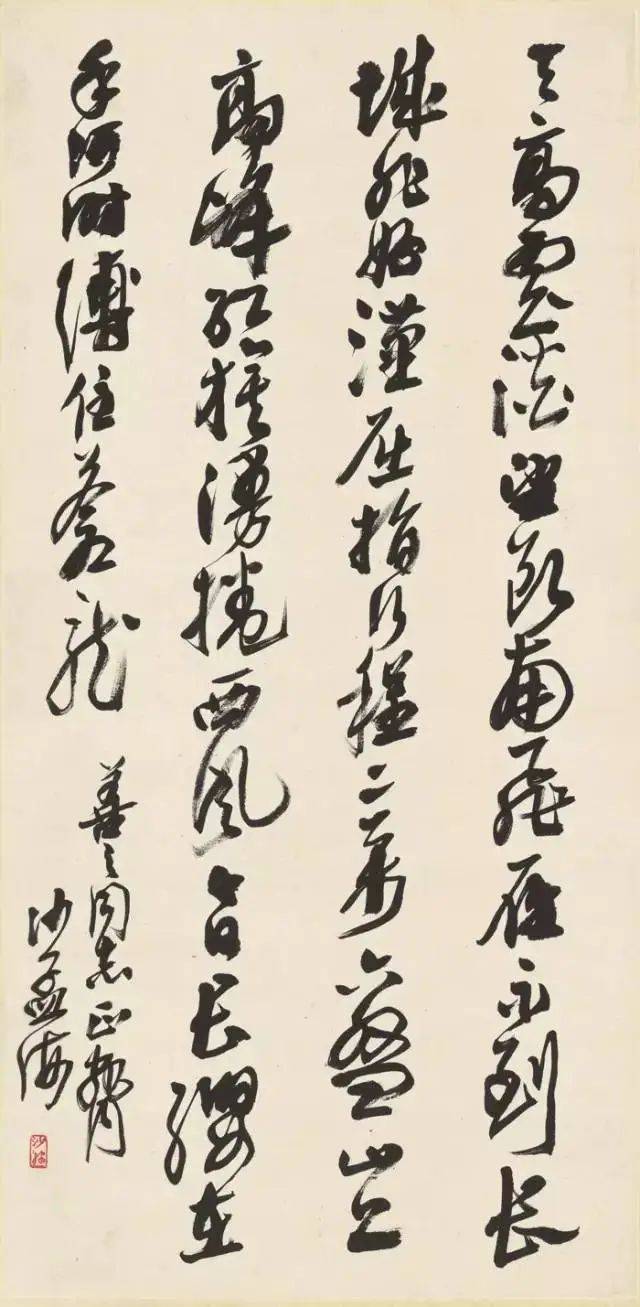 天高雲澹望斷南飛雁不到長
城非好漢屈指行程二萬六盤山上
高峰紅旗漫捲西風今日長纓在
手何時縛住蒼龍
善之同志正腕
沙孟海